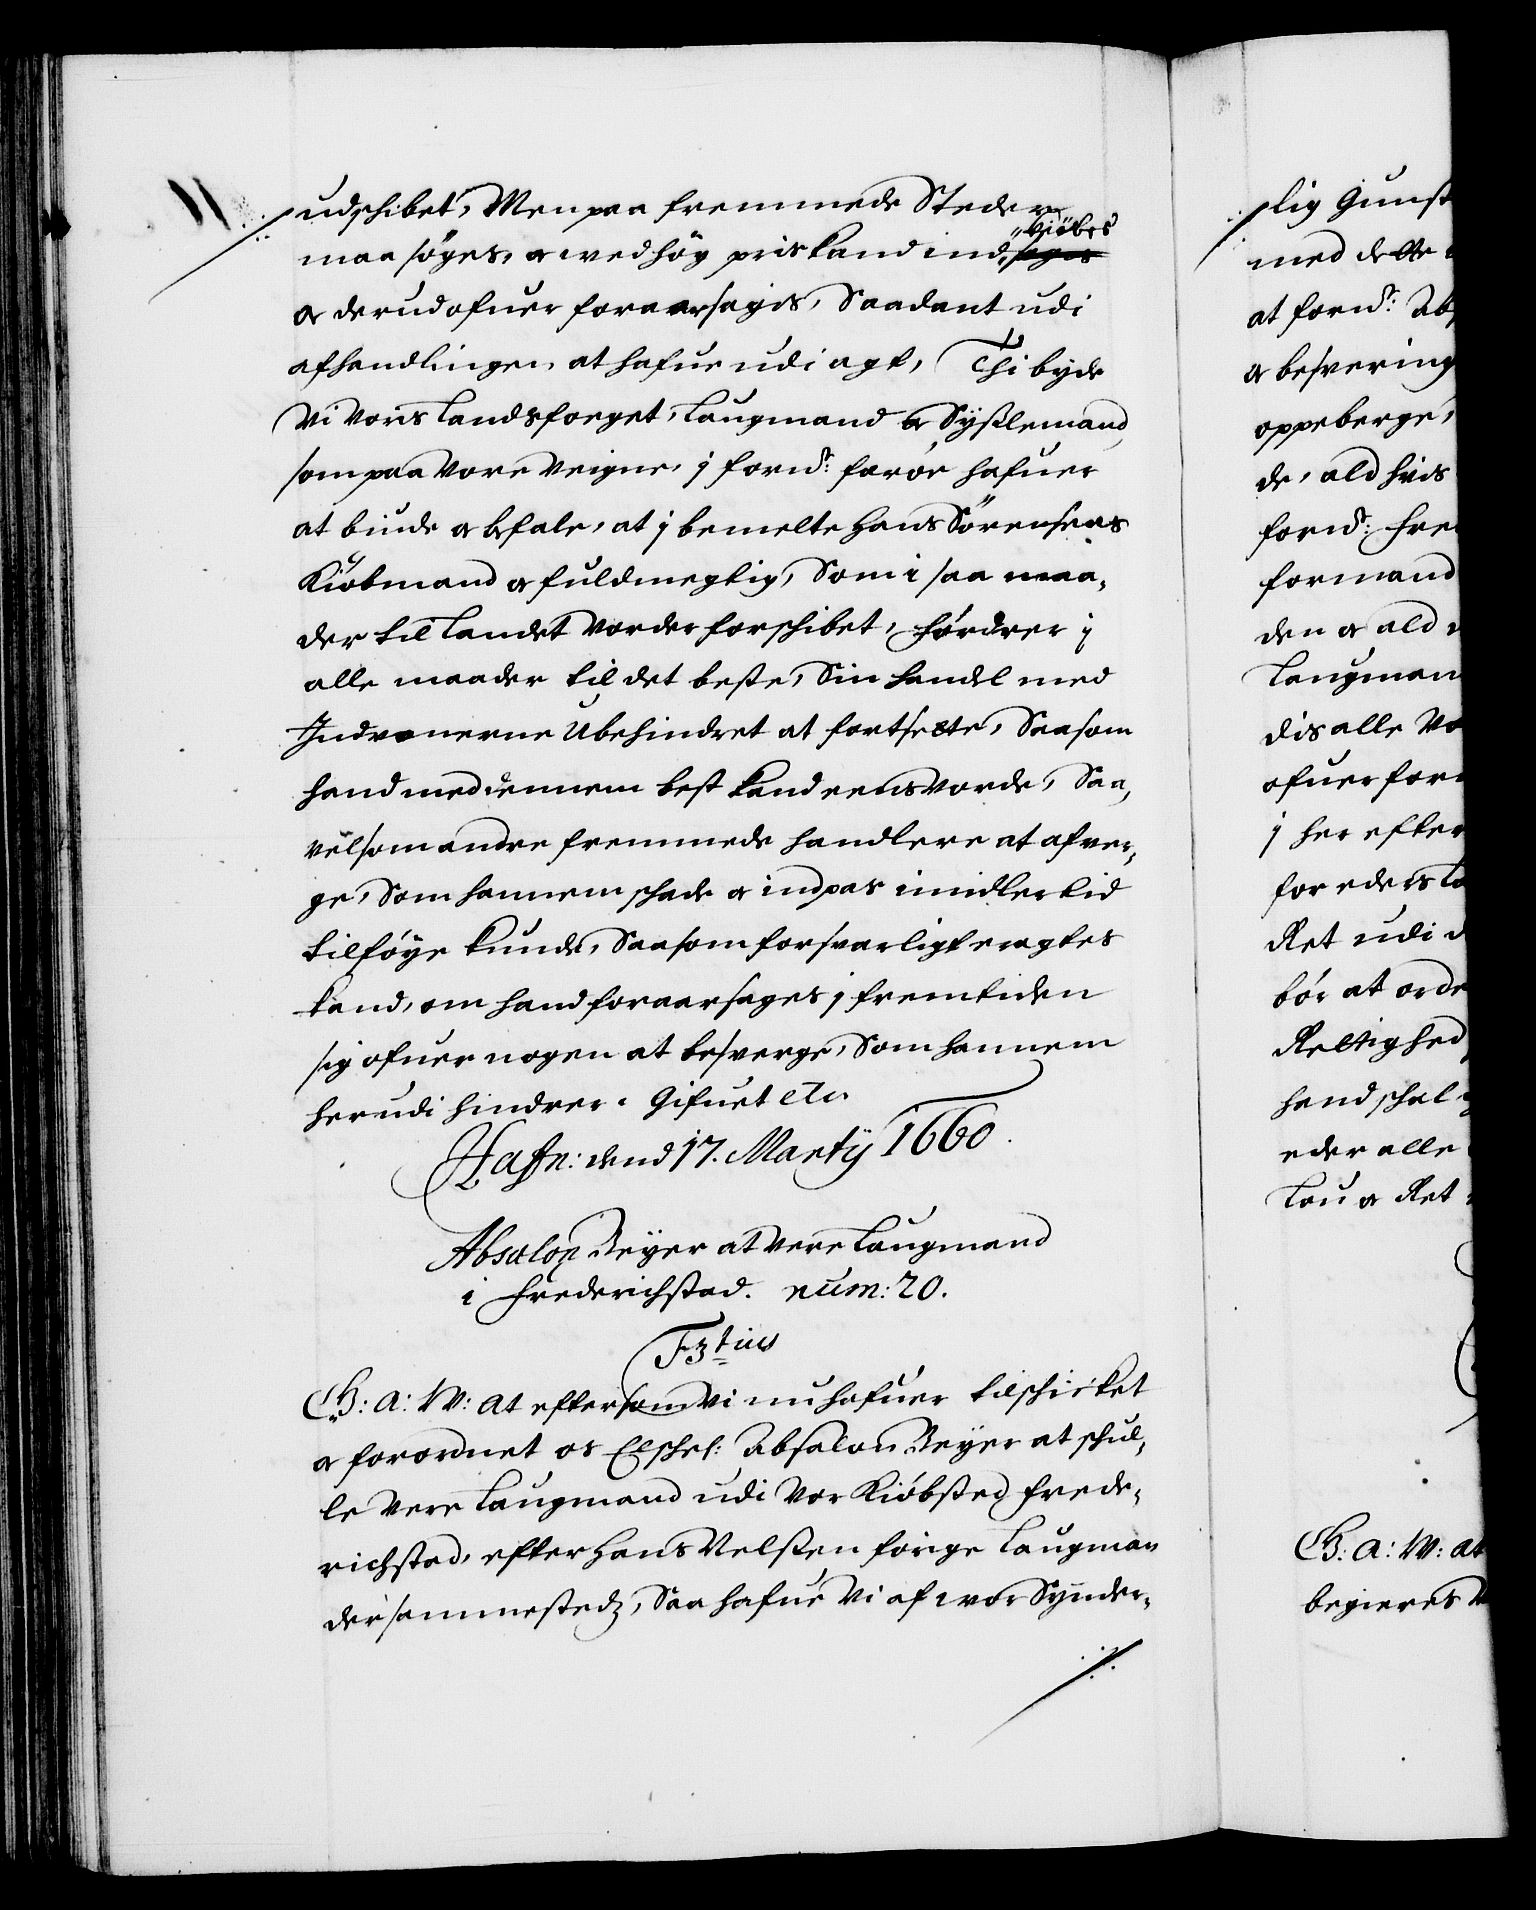 udschibet, Men paa fremmede Steder
maa søges, oc wed høy pris kand ind, kiöbes
oc derudofuer foraarsagis, Saadant udi
afhandlingen at hafue udi agt, Thi byde
Vi voris Landsfoeget, Laugmand oc Syßlemand
som paa Vore Veigne, i fornd: færøe hafuer
at biude oc befale, at i bemelte Hans Sörensens
Kiöbmand oc fuldmegtig, Som i saa maa-
der til Landet vorder forschibet, fordrer i
alle maader til det beste, Sin handel med
Indvonerne Ubehindret at fortsette, Saasom
hand med dennem best kand eens vorde, Saa,
velsom andre fremmede handlere at afver-
ge, Som hannem schade oc indpas imidlertid
tilföye kunde, Saasom forsvarligt eragtes
kand, om hand foraarsages i fremtiden
sig ofuer nogen at besverge, Som hannem
herudi hindrer. Gifuet etc.
Hafn: dend 17. Martij 1660.
Absalon Beyer at vere Laugmand
i Frederichstad. num: 20.
F3tius
G: A: W: at eftersom Vi nu hafuer tilschicket
oc forordnet os Elschel: Absalon Beyer at schul-
le vere Laugmand udi Vor Kiöbsted Frede-
richstad, efter Hans Nelsten forige Laugman
dersammestedz, Saa hafue Vi af vor Synder-
lig Gunst
med dette
at fornd: Ab
oc besvering
oppeberge,
de, ald hvis
fornd: Fre
formand
den oc ald
Laugman
dis alle Vo
ofuer forn
i her efter
for eders La
Ret udi d
bör at orde
Rettighed
hand schal
eder alle
Lou oc Ret
G: A: W: at
begieres